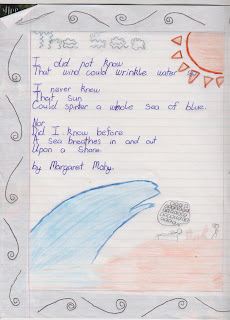 The Sea
I did not know
That wind could wrinkle water so
I never knew
That sun
Could splinter a whole sea of blue.
Nor
Did I know before
A sea breathes in and out
Upon a shore.
by Margaret Mahy.